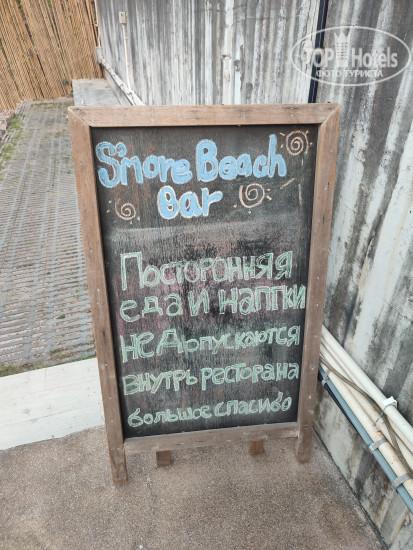 TopHotels
ФОТО ТУРИСТА
S'more Beach
Bar
Посторонняя
еда и наптки
не допускаются
внутрь ресторана
большое спасибо